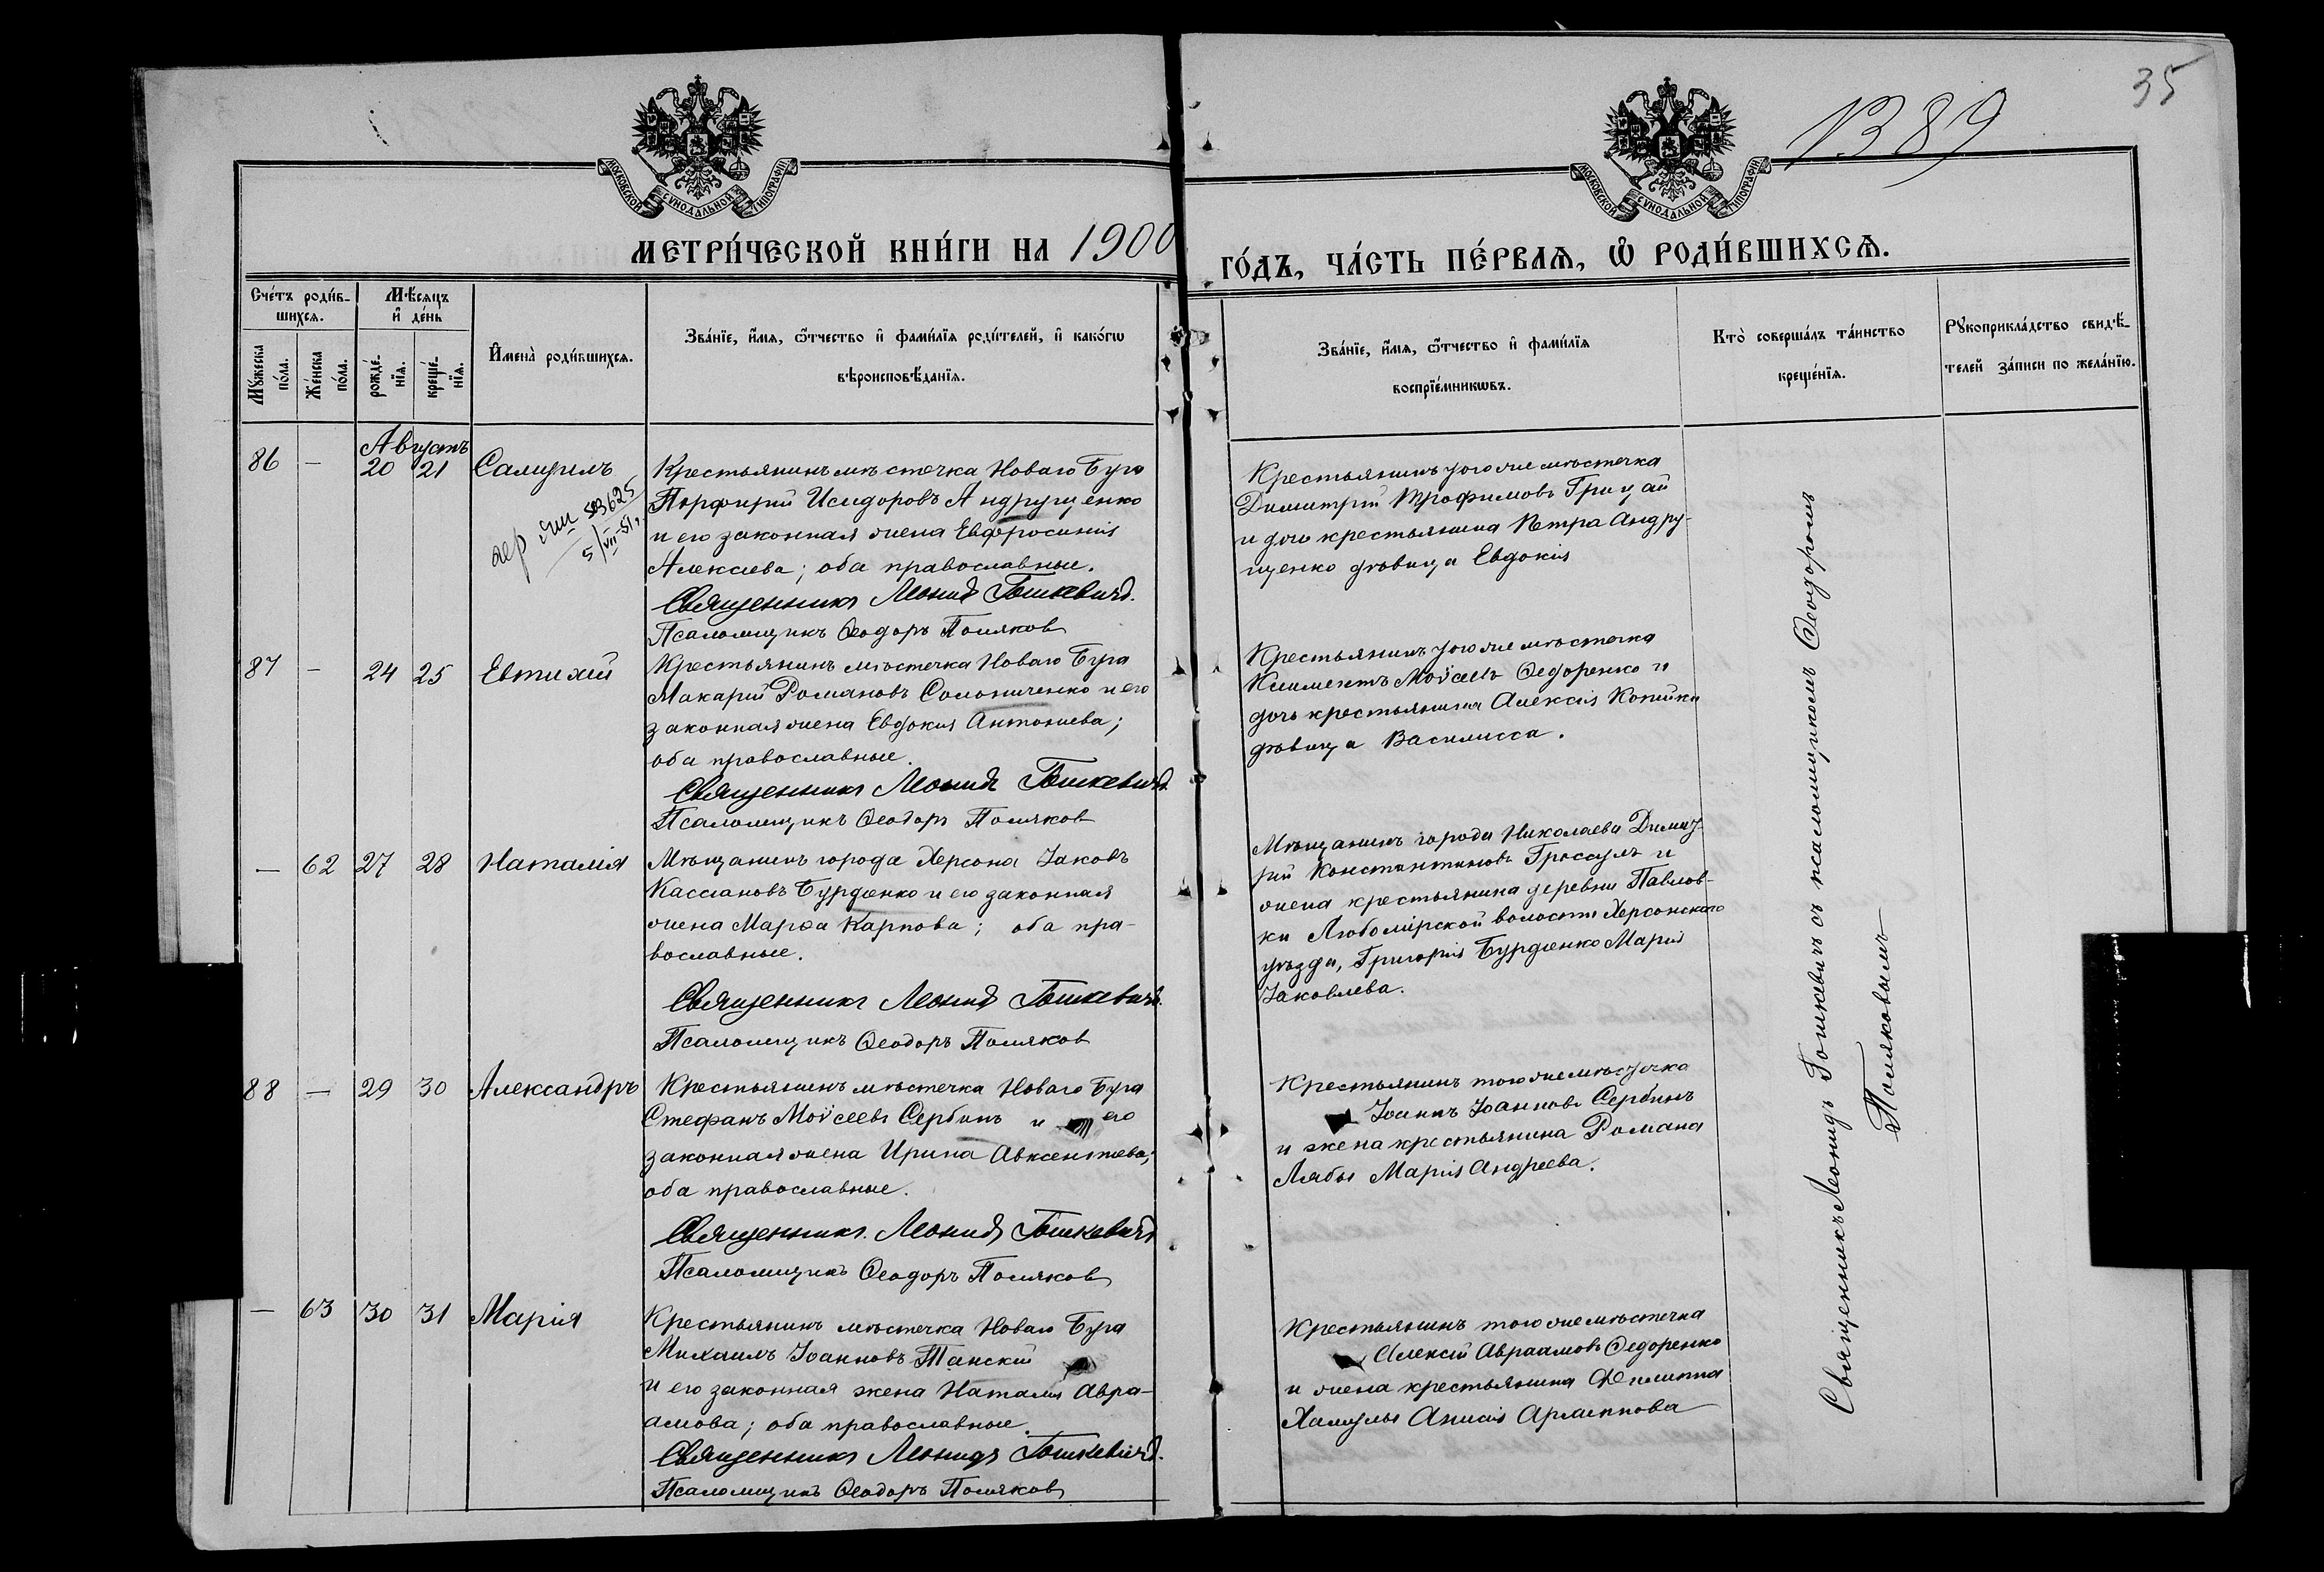 35
1389
МОСКОВСКОЙ СѴНОДАЛЬНОЙ ТИПОГРАФІИ
МОСКОВСКОЙ СѴНОДАЛЬНОЙ ТИПОГРАФІИ
МЕТРИ́ЧЕСКОЙ КНИ́ГИ НА 1900
ГО́ДЪ, ЧА́СТЬ ПЕ́РВАѦ, Ѡ҆ РОДИ́ВШИХСѦ.
Сче́тъ роди́в-
шихсѧ.
Мѣ́сѧцъ
и҆ де́нь
Мꙋ́жеска
по́ла.
Же́нска
по́ла.
рожде́-
нїѧ.
креще́-
нїѧ.
И҆мена̀ роди́вшихсѧ.
Зва́нїе, и҆́мѧ, ѻ҆́тчество и҆ фами́лїѧ роди́телей, и҆ како́гѡ
вѣроисповѣ́данїѧ.
Зва́нїе, и҆́мѧ, ѻ҆́тчество и҆ фами́лїѧ
воспрїе́мникѡвъ.
Кто̀ соверша́лъ та́инство
креще́нїѧ.
Рꙋкоприкла́дство свидѣ́-
телей за́писи по жела́нїю.
Августъ
86 — 20 21 Самуилъ
5/VII-51
Крестьянинъ мѣстечка Новаго Буга
Порфирій Исидоровъ Андрущенко
и его законная жена Евфросинія
Алексіева; оба православные.
Священникъ Леонидъ Гошкевичъ.
Псаломщикъ Ѳеодоръ Поляковъ
Крестьянинъ того же мѣстечка
Димитрій Трофимовъ Грицай
и дочь крестьянина Петра Андру-
щенко дѣвица Евдокія
87 — 24 25 Евтихій
Крестьянинъ мѣстечка Новаго Буга
Макарій Романовъ Соломниченко и его
законная жена Евдокія Антоніева;
оба православные.
Священникъ Леонидъ Гошкевичъ.
Псаломщикъ Ѳеодоръ Поляковъ
Крестьянинъ того же мѣстечка
Климентъ Моѵсеевъ Ѳедоренко и
дочь крестьянина Алексія Копійки
дѣвица Василисса.
— 62 27 28 Наталія
Мѣщанинъ города Херсона Іаковъ
Кассіановъ Бурдюнко и его законная
жена Марѳа Карпова; оба пра-
вославные.
Священникъ Леонидъ Гошкевичъ.
Псаломщикъ Ѳеодоръ Поляковъ
Мѣщанинъ города Николаева Димит-
рій Константиновъ Гроссулъ и
жена крестьянина деревни Павлов-
ки Любомірской волости Херсонскаго
уѣзда, Григорія Бурдюнко Марія
Іаковлева.
88 — 29 30 Александръ
Крестьянинъ мѣстечка Новаго Буга
Стефанъ Моѵсеевъ Сербинъ и его
законная жена Ирина Авксентіева;
оба православные.
Священникъ Леонидъ Гошкевичъ
Псаломщикъ Ѳеодоръ Поляковъ
Крестьянинъ того же мѣстечка
Іоаннъ Іоанновъ Сербинъ
и жена крестьянина Романа
Лябы Марія Андреева.
— 63 30 31 Марія
Крестьянинъ мѣстечка Новаго Буга
Михаилъ Іоанновъ Танскій
и его законная жена Наталія Авра-
амова; оба православные.
Священникъ Леонидъ Гошкевичъ.
Псаломщикъ Ѳеодоръ Поляковъ
Крестьянинъ того же мѣстечка
Алексій Авраамовъ Ѳедоренко
и жена крестьянина Филиппа
Хамулы Анисія
Священникъ Леонидъ Гошкевичъ съ псаломщикомъ Ѳеодоромъ
Поляковымъ